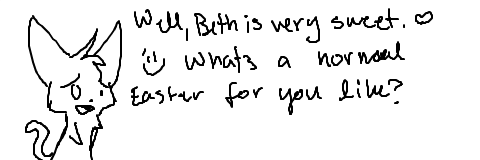 Well, Beth is very sweet. ♡
:) Whats a normal
Easter for you like?